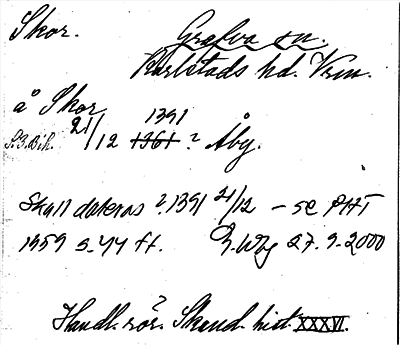 Skor. Grafva sn.
Karlstads hd. Vrm.
å Skor
1391
S.B.Bih. 21/12 1361 ? Åby.
Skall dateras ? 1391 21/12 – se PHT
1959 s. 44 ff. 27.9.2000
?
Handl. rör. Skand. hist. XXXVI.